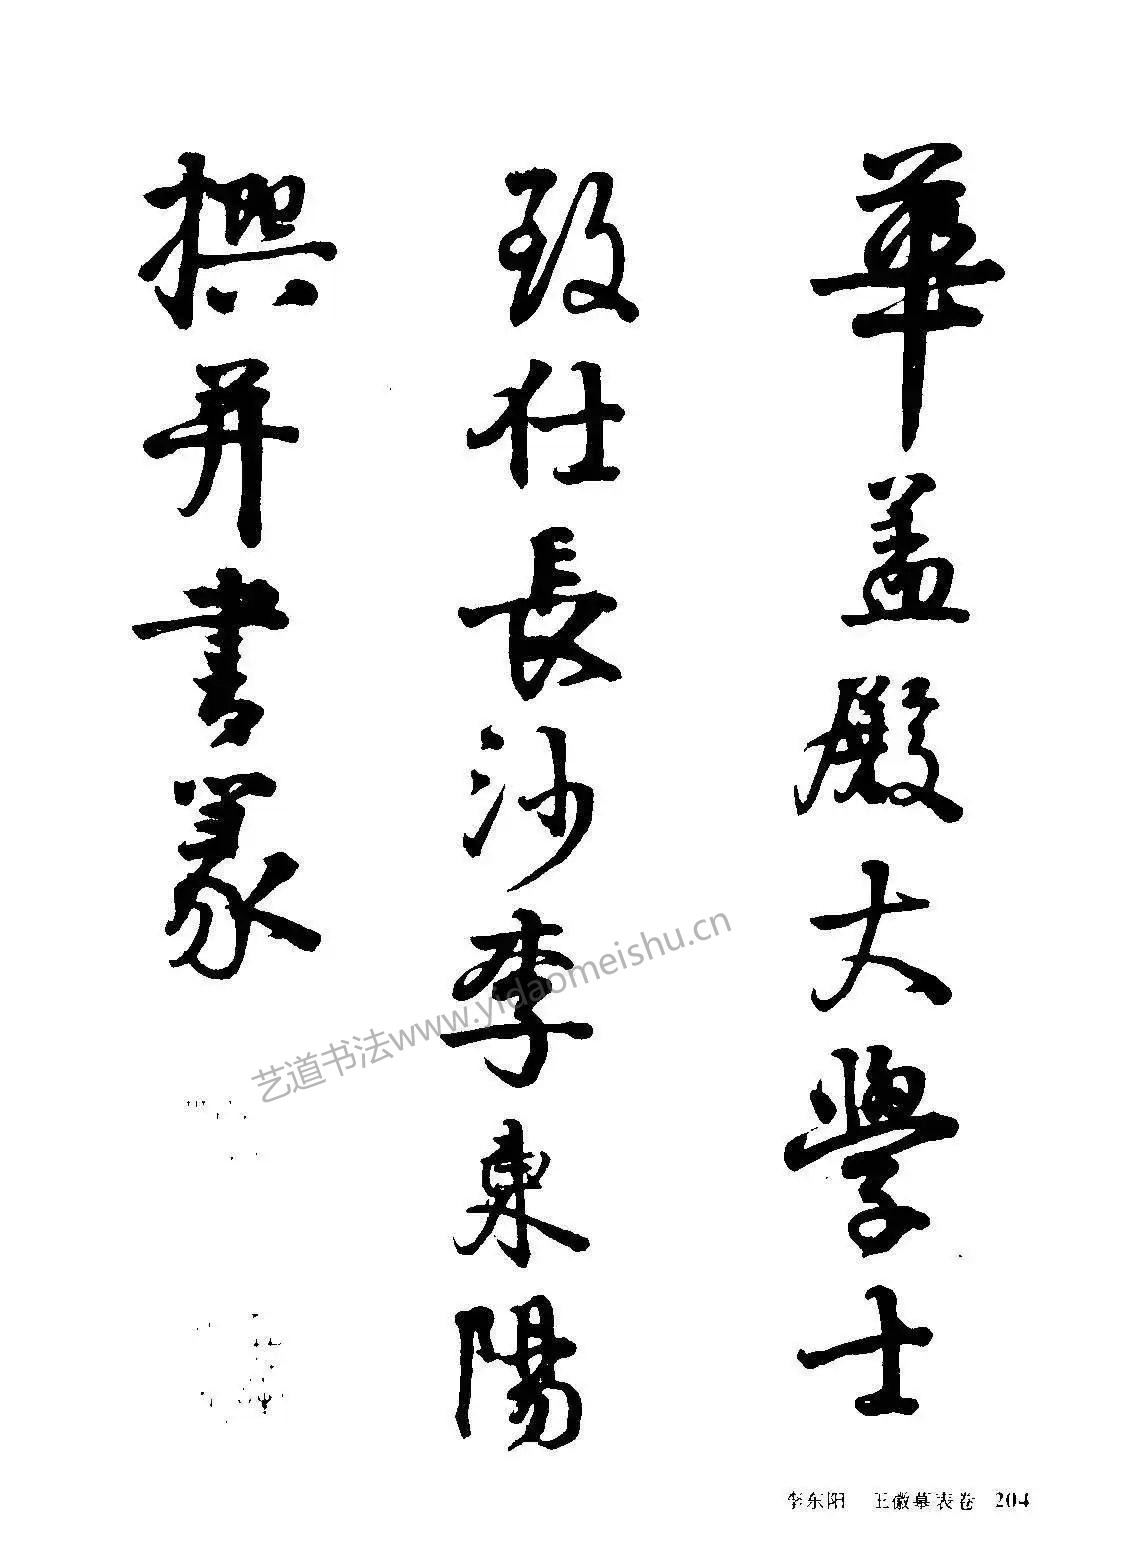 華盖殿大學士
致仕長沙李東陽
撰并書篆
艺道书法www.yidaomeishu.cn
李东阳 王徽墓表卷 204